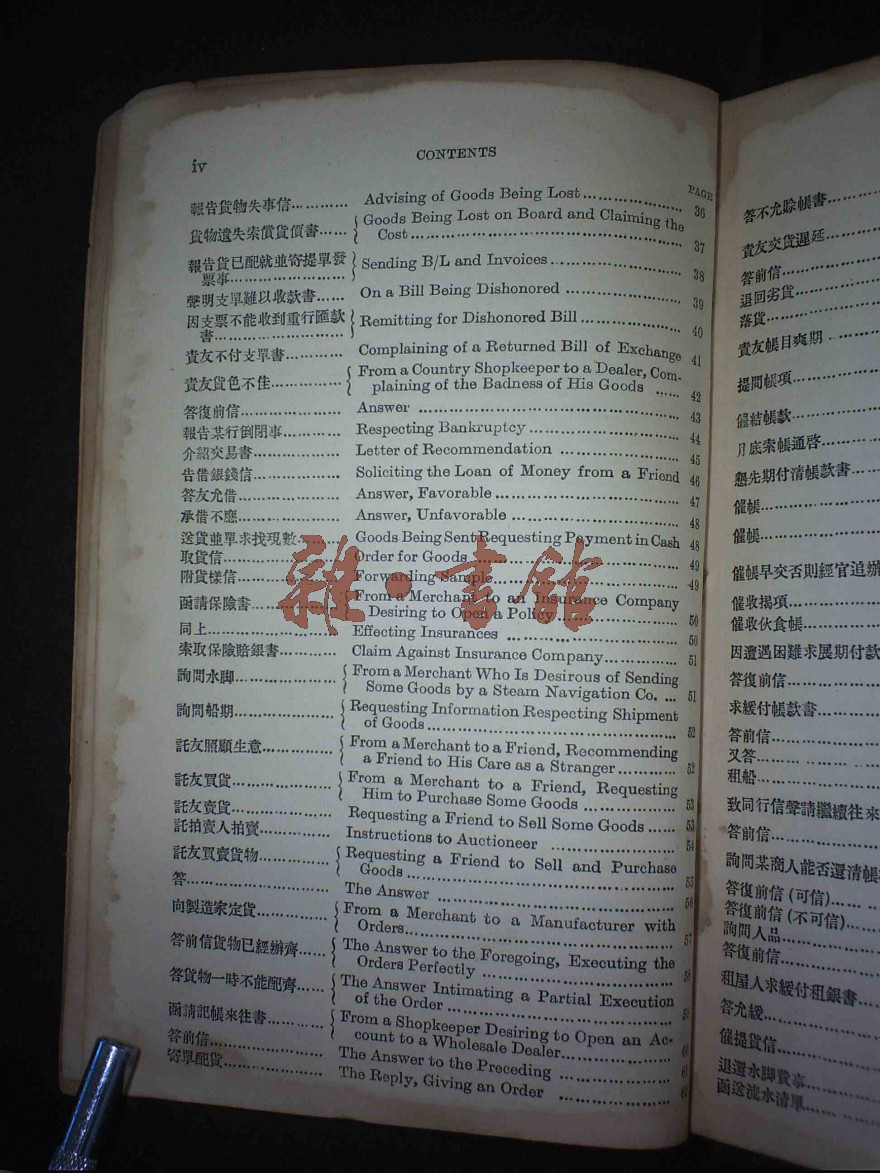 iv
CONTENTS
PAGE
報告貨物失事信………… Advising of Goods Being Lost………………… 36
貨物遺失索償貨價書…… { Goods Being Lost on Board and Claiming the
Cost………………………………………… 37
報告貨已配就並寄提單發
票事…………………… } Sending B/L and Invoices…………………… 38
聲明支單難以收款書…… On a Bill Being Dishonored ………………… 39
因支票不能收到重行匯款
書……………………… { Remitting for Dishonored Bill……………… 40
貴友不付支單書………… Complaining of a Returned Bill of Exchange 41
貴友貨色不佳…………… { From a Country Shopkeeper to a Dealer, Com-
plaining of the Badness of His Goods …… 42
答復前信………………… Answer ………………………………………… 43
報告某行倒閉事………… Respecting Bankruptcy……………………… 44
介紹交易書……………… Letter of Recommendation ………………… 45
告借銀錢信……………… Soliciting the Loan of Money from a Friend 46
答友允借………………… Answer, Favorable…………………………… 47
承借不應………………… Answer, Unfavorable………………………… 48
送貨並單求找現數……… Goods Being Sent Requesting Payment in Cash 48
取貨信…………………… Order for Goods……………………………… 49
附貨樣信………………… Forwarding Sample…………………………… 49
函請保險書……………… { From a Merchant to an Insurance Company
Desiring to Open a Policy………………… 50
同上……………………… Effecting Insurances ………………………… 50
索取保險賠銀書………… Claim Against Insurance Company………… 51
詢問水脚………………… { From a Merchant Who Is Desirous of Sending
Some Goods by a Steam Navigation Co. … 51
詢問船期………………… { Requesting Information Respecting Shipment
of Goods…………………………………… 52
託友照顧生意…………… { From a Merchant to a Friend, Recommending
a Friend to His Care as a Stranger……… 52
託友買貨………………… { From a Merchant to a Friend, Requesting
Him to Purchase Some Goods …………… 53
託友賣貨………………… Requesting a Friend to Sell Some Goods…… 53
託拍賣人拍賣…………… Instructions to Auctioneer ………………… 54
託友買賣貨物…………… { Requesting a Friend to Sell and Purchase
Goods……………………………………… 55
答………………………… The Answer …………………………………… 56
向製造家定貨…………… { From a Merchant to a Manufacturer with
Orders……………………………………… 57
答前信貨物已經辦齊…… { The Answer to the Foregoing, Executing the
Orders Perfectly ………………………… 58
答貨物一時不能配齊…… { The Answer Intimating a Partial Execution
of the Order………………………………
函請記帳來往書………… { From a Shopkeeper Desiring to Open an Ac-
count to a Wholesale Dealer……………
答前信…………………… The Answer to the Preceding ………………
寄單配貨………………… The Reply, Giving an Order …………………
答不允賒帳書………
貴友交貨遲延………
答前信………………
退回劣貨……………
落貨…………………
貴友帳目爽期………
提問帳項……………
催結帳款……………
月底索帳通啓………
懇先期付清帳款書……
催帳…………………
催帳…………………
催帳早交否則經官追辦
催收揭項……………
催收伙食帳…………
因遭遇困難求展期付款
答復前信……………
求緩付帳款書………
答前信………………
又答…………………
租船…………………
致同行信聲請繼續往來
答前信………………
詢問某商人能否還清帳
答復前信(可信)……
答復前信(不可信)…
詢問人品……………
答復前信……………
租屋人求緩付租銀書…
答允緩………………
催提貨信……………
退還水脚費事………
函送流水清單………
雜·書館